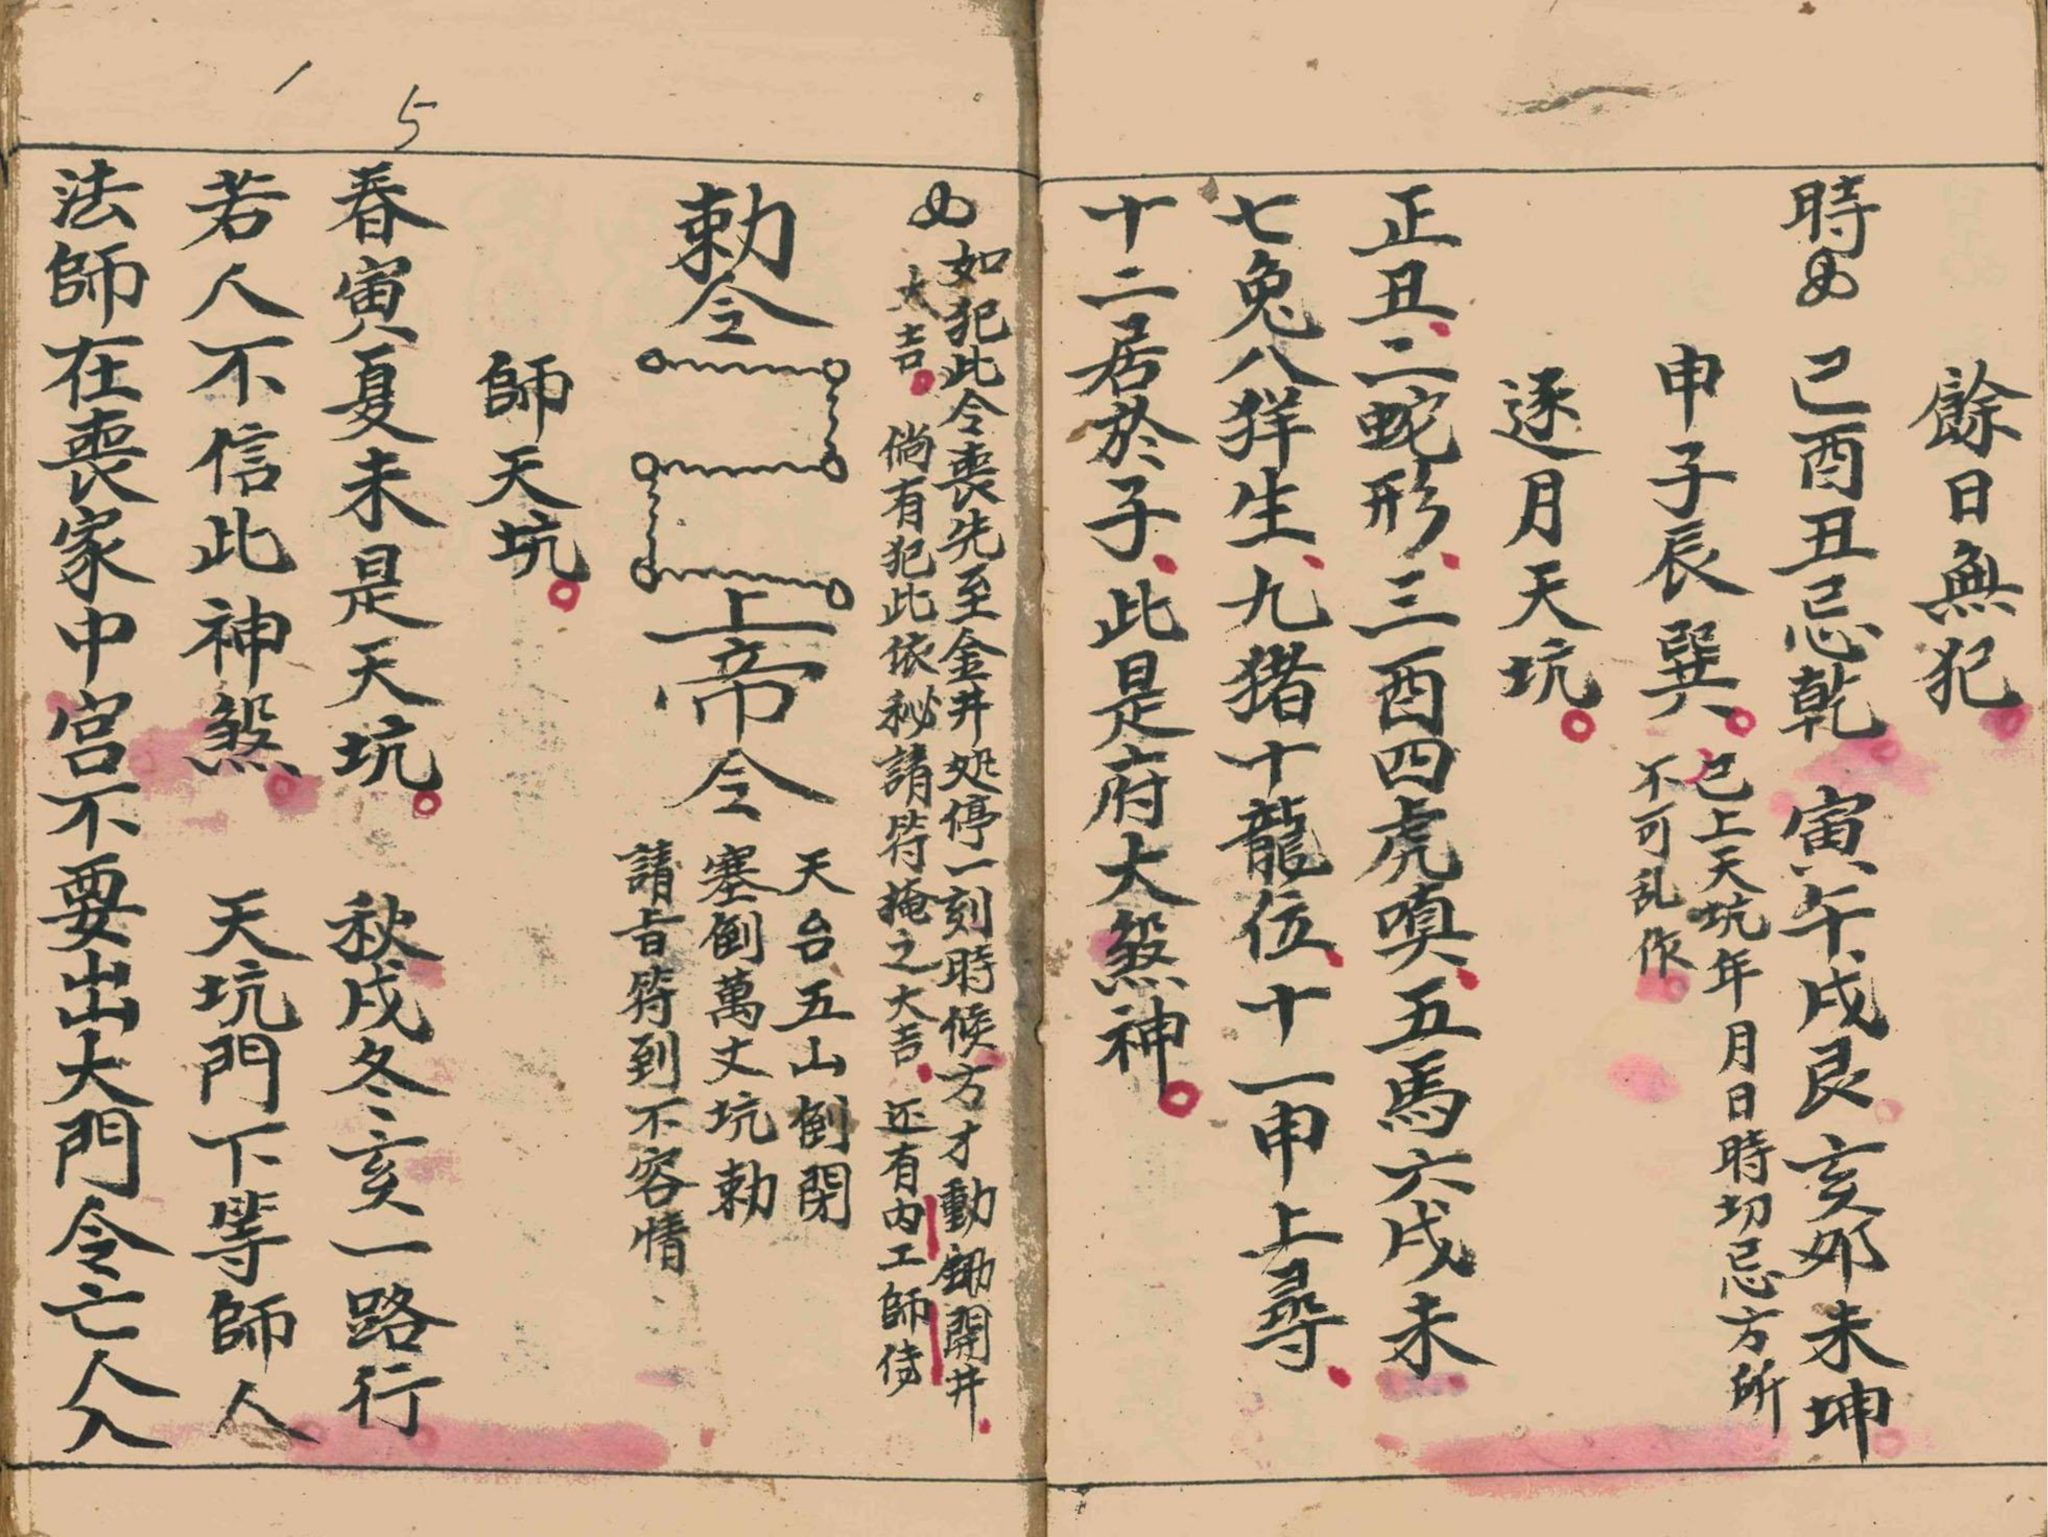 餘日無犯
時 巳酉丑忌乾 寅午戌艮 亥夘未坤
申子辰巽
已上天坑年月日時切忌方所
不可乱作
逐月天坑
正丑二蛇形三酉四虎嗔五馬六戌未
七兔八羊生九猪十龍位十一申上尋
十二居於子此是府大煞神
如犯此令喪先至金井処停一刻時候方才動鋤開井
大吉 倘有犯此依秘請符掩之大吉 还有内工師侍
勅令
上帝令
天台五山倒閉
塞倒萬丈坑勅
請旨符到不容情
師天坑
春寅夏未是天坑 秋戌冬亥一路行
若人不信此神煞 天坑門下等師人
法師在喪家中宮不要出大門令亡人入
5